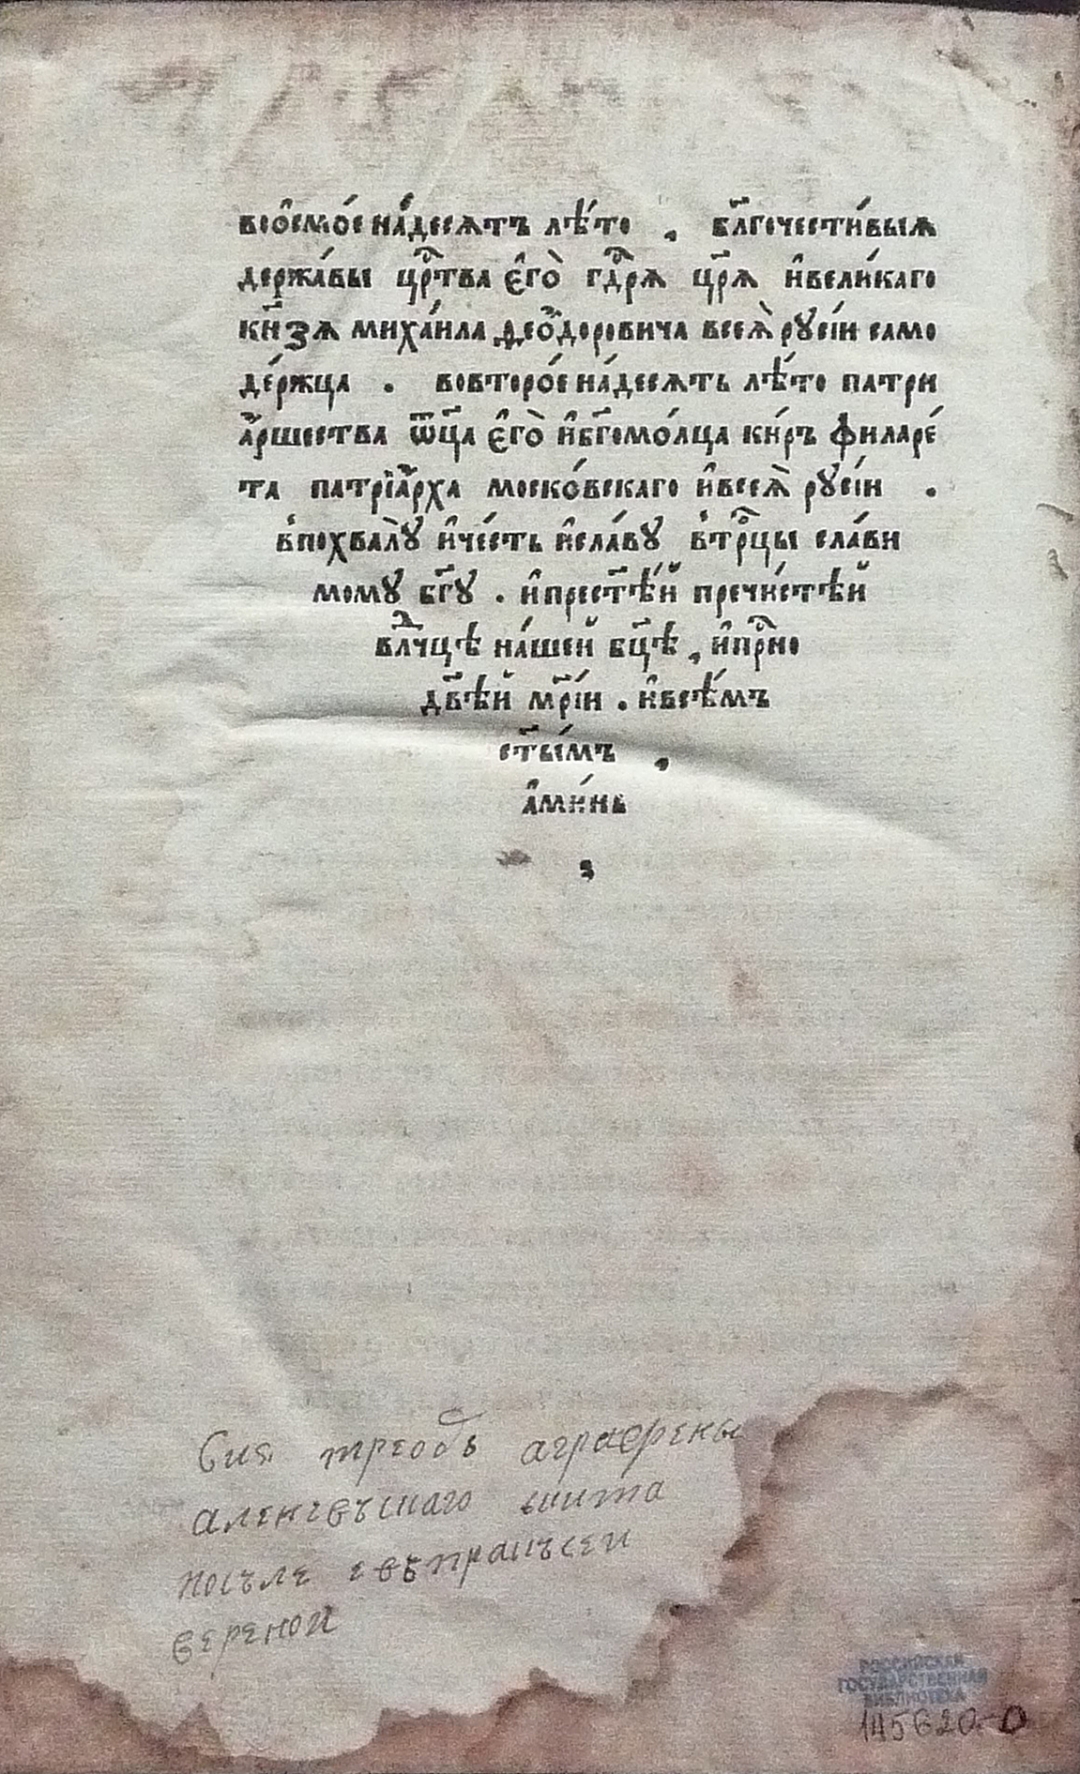 вео̑смо́е на́десѧтъ лѣ́то , бл҃гочести́выѧ
держа́вы црⷭ҇тва є҆го̀ гдⷭ҇рѧ цр҃ѧ и҆вели́каго
кн҃зѧ миха́ила ѳео́доровича всеѧ̀ рꙋсі́и само
де́ржца . вовторо́е на́десѧть лѣ́то патри
а҆́ршества ѿц҃а є҆го̀ и҆бг҃омо́лца ки́ръ филаре́
та патрїа́рха моско́вскаго и҆всеѧ̀ рꙋсі́и .
в̾похвалꙋ̀ и҆че́сть и҆сла́вꙋ в̾трⷪ҇цы сла́ви
момꙋ бг҃ꙋ . и҆прест҃ѣ́й пречи́стѣй
влⷣчцѣ на́шей бц҃ѣ , и҆прⷭ҇но
дв҃ѣй мр҃і́и . и҆всѣ́мъ
ст҃ы́мъ ,
а҆ми́нь
Сия треобь аграфены
посъле
РОССИЙСКАЯ
ГОСУДАРСТВЕННАЯ
БИБЛИОТЕКА
145620-О